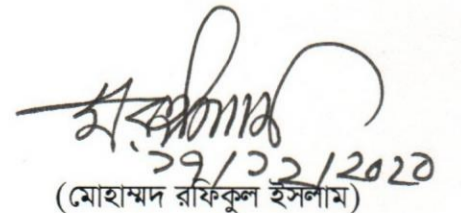 ১৭/১২/2020
(মোহাম্মদ রফিকুল ইসলাম)